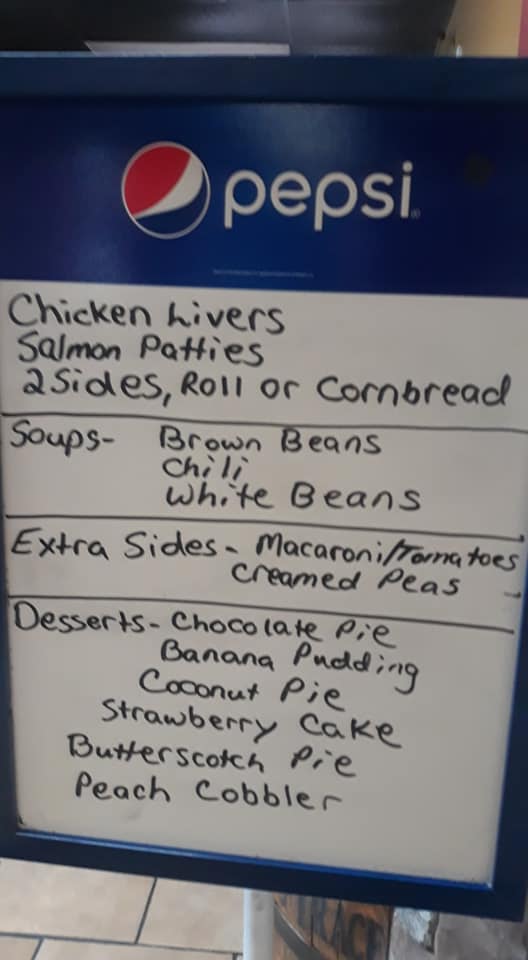 pepsi
Chicken Livers
Salmon Patties
2 Sides, Roll or Cornbread
Soups- Brown Beans
Chili
White Beans
Extra Sides - Macaroni/Tomatoes
Creamed Peas
Desserts- Chocolate Pie
Banana Pudding
Coconut Pie
Strawberry Cake
Butterscotch Pie
Peach Cobbler